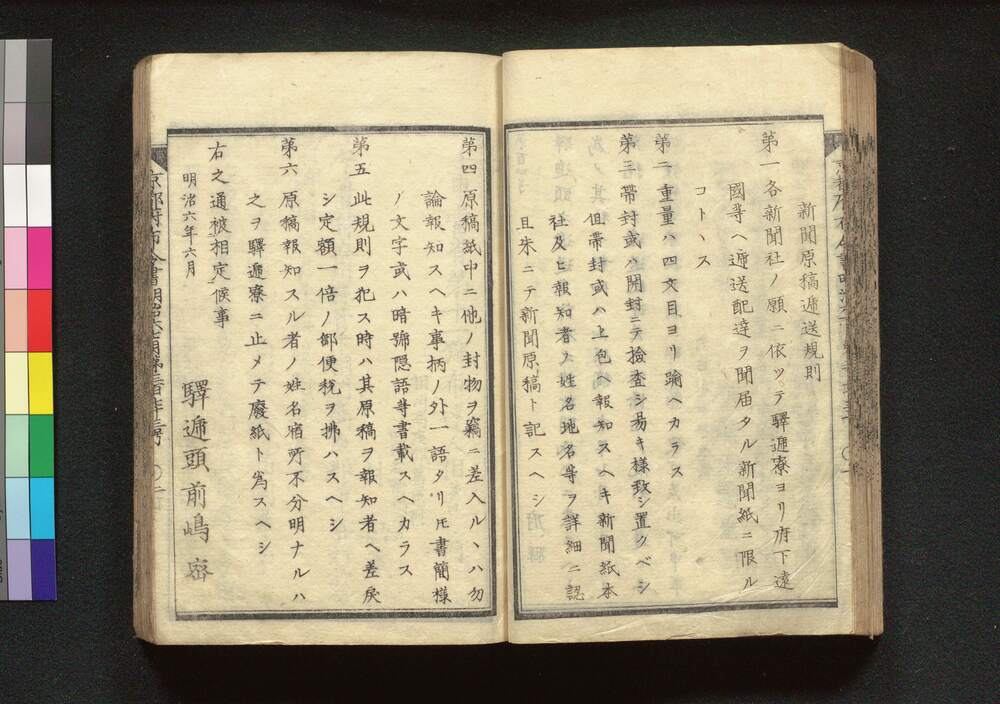 新聞原稿逓送規則
第一 各新聞社ノ願ニ依ッテ驛逓寮ヨリ府下遠
國等ヘ逓送配達ヲ聞届タル新聞紙ニ限ル
コトヽス
第二 重量ハ四文目ヨリ踰ヘカラス
第三 帯封或ハ開封ニテ檢査シ易キ様致シ置クベシ
但帯封或ハ上包ヘ報知スヘキ新聞紙本
社及ヒ報知者ノ姓名地名等ヲ詳細ニ認
且朱ニテ新聞原稿ト記スヘシ
第四 原稿紙中ニ他ノ封物ヲ竊ニ差入ルヽハ勿
論報知スヘキ事柄ノ外一語タリ𪜈書簡様
ノ文字或ハ暗號隠語等書載スヘカラス
第五 此規則ヲ犯ス時ハ其原稿ヲ報知者ヘ差戻
シ定額一倍ノ郵便税ヲ拂ハスヘシ
第六 原稿報知スル者ノ姓名宿所不分明ナルハ
之ヲ驛逓寮ニ止メテ廢紙ト為スヘシ
右之通被相定候事
明治六年六月
驛逓頭前嶋密
京都府布令書明治六年